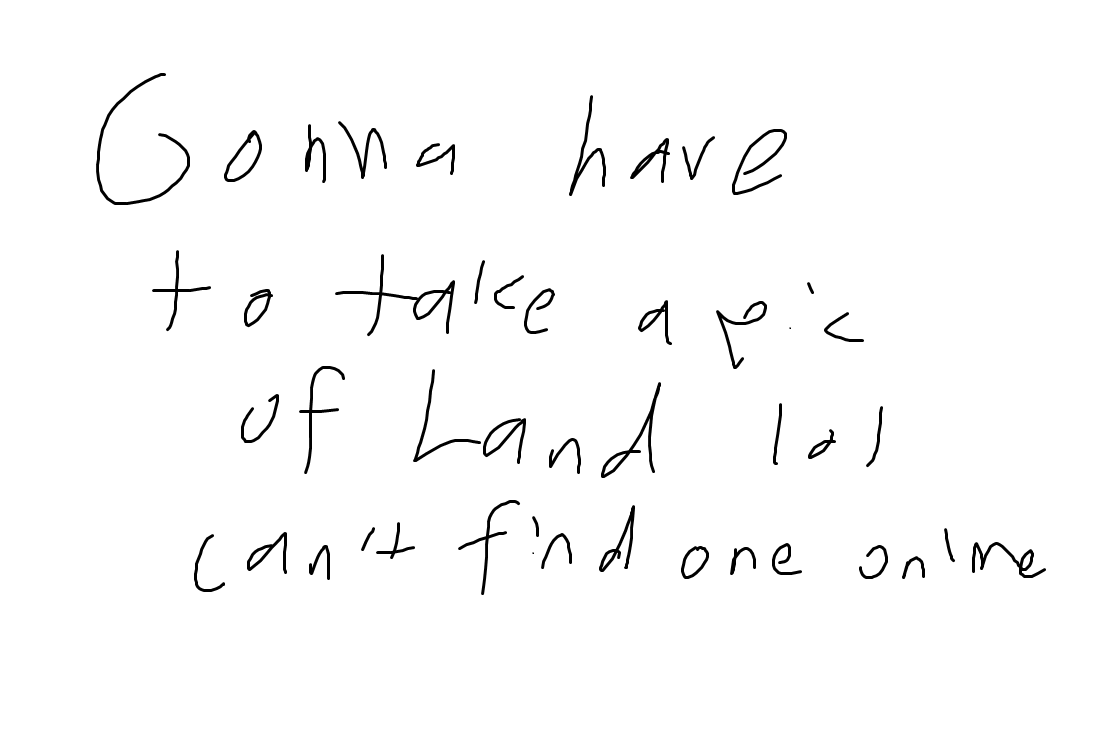 Gonna have
to take a pic
of Land lol
can't find one online